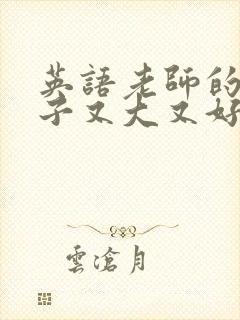 英語老師的
子又大又好
雲滄月